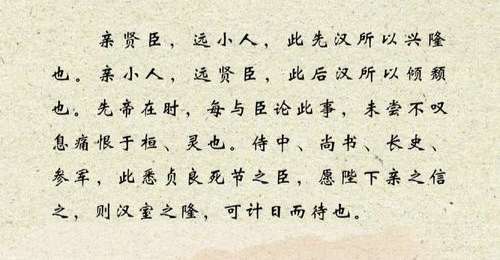 亲贤臣，远小人，此先汉所以兴隆
也。亲小人，远贤臣，此后汉所以倾颓
也。先帝在时，每与臣论此事，未尝不叹
息痛恨于桓、灵也。侍中、尚书、长史、
参军，此悉贞良死节之臣，愿陛下亲之信
之，则汉室之隆，可计日而待也。